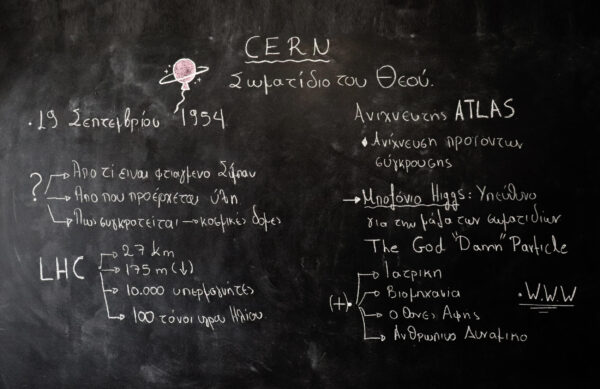 CERN
Σωματίδιο του Θεού.
• 19 Σεπτεμβρίου 1954
? Από τι είναι φτιαγμένο Σύμπαν
Από που προέρχεται ύλη
Πως συγκροτείται → κοσμικές δομές
LHC
27 km
175 m (↓)
10.000 υπερμαγνήτες
100 τόνοι υγρού Ηλίου
Ανιχνευτής ATLAS
Ανίχνευση προϊόντων
σύγκρουσης
→ Μποζόνιο Higgs: Υπεύθυνο
για την μάζα των σωματιδίων
The God "Damn" Particle
(+)
Ιατρική
Βιομηχανία
Οθόνες Αφής
Ανθρώπινο Δυναμικό
• W.W.W